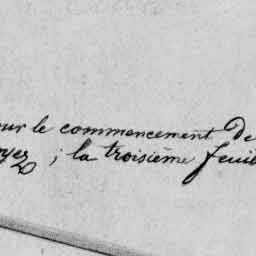 our le commencement de
oyez ; la troisième feuil